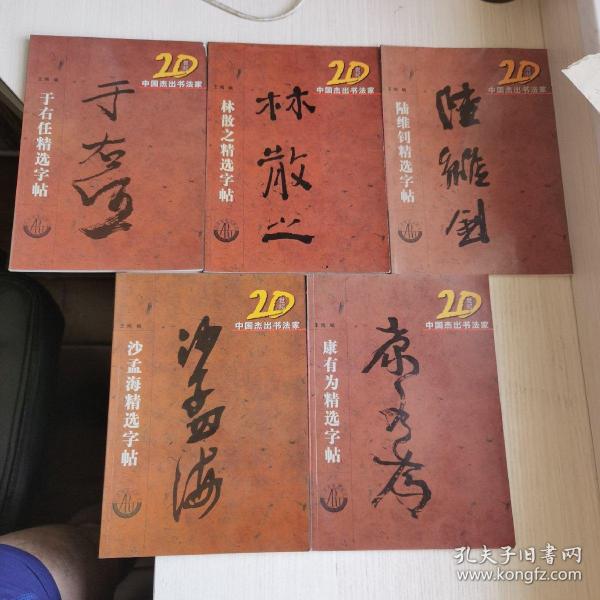 20世纪
中国杰出书法家
王冰 编
于右任精选字帖
于右任
20世纪
中国杰出书法家
林散之精选字帖
林散之
20世纪
中国杰出书法家
陆维钊精选字帖
陆维钊
20世纪
中国杰出书法家
沙孟海精选字帖
沙孟海
20世纪
中国杰出书法家
康有为精选字帖
康有为
孔夫子旧书网
www.kongfz.com